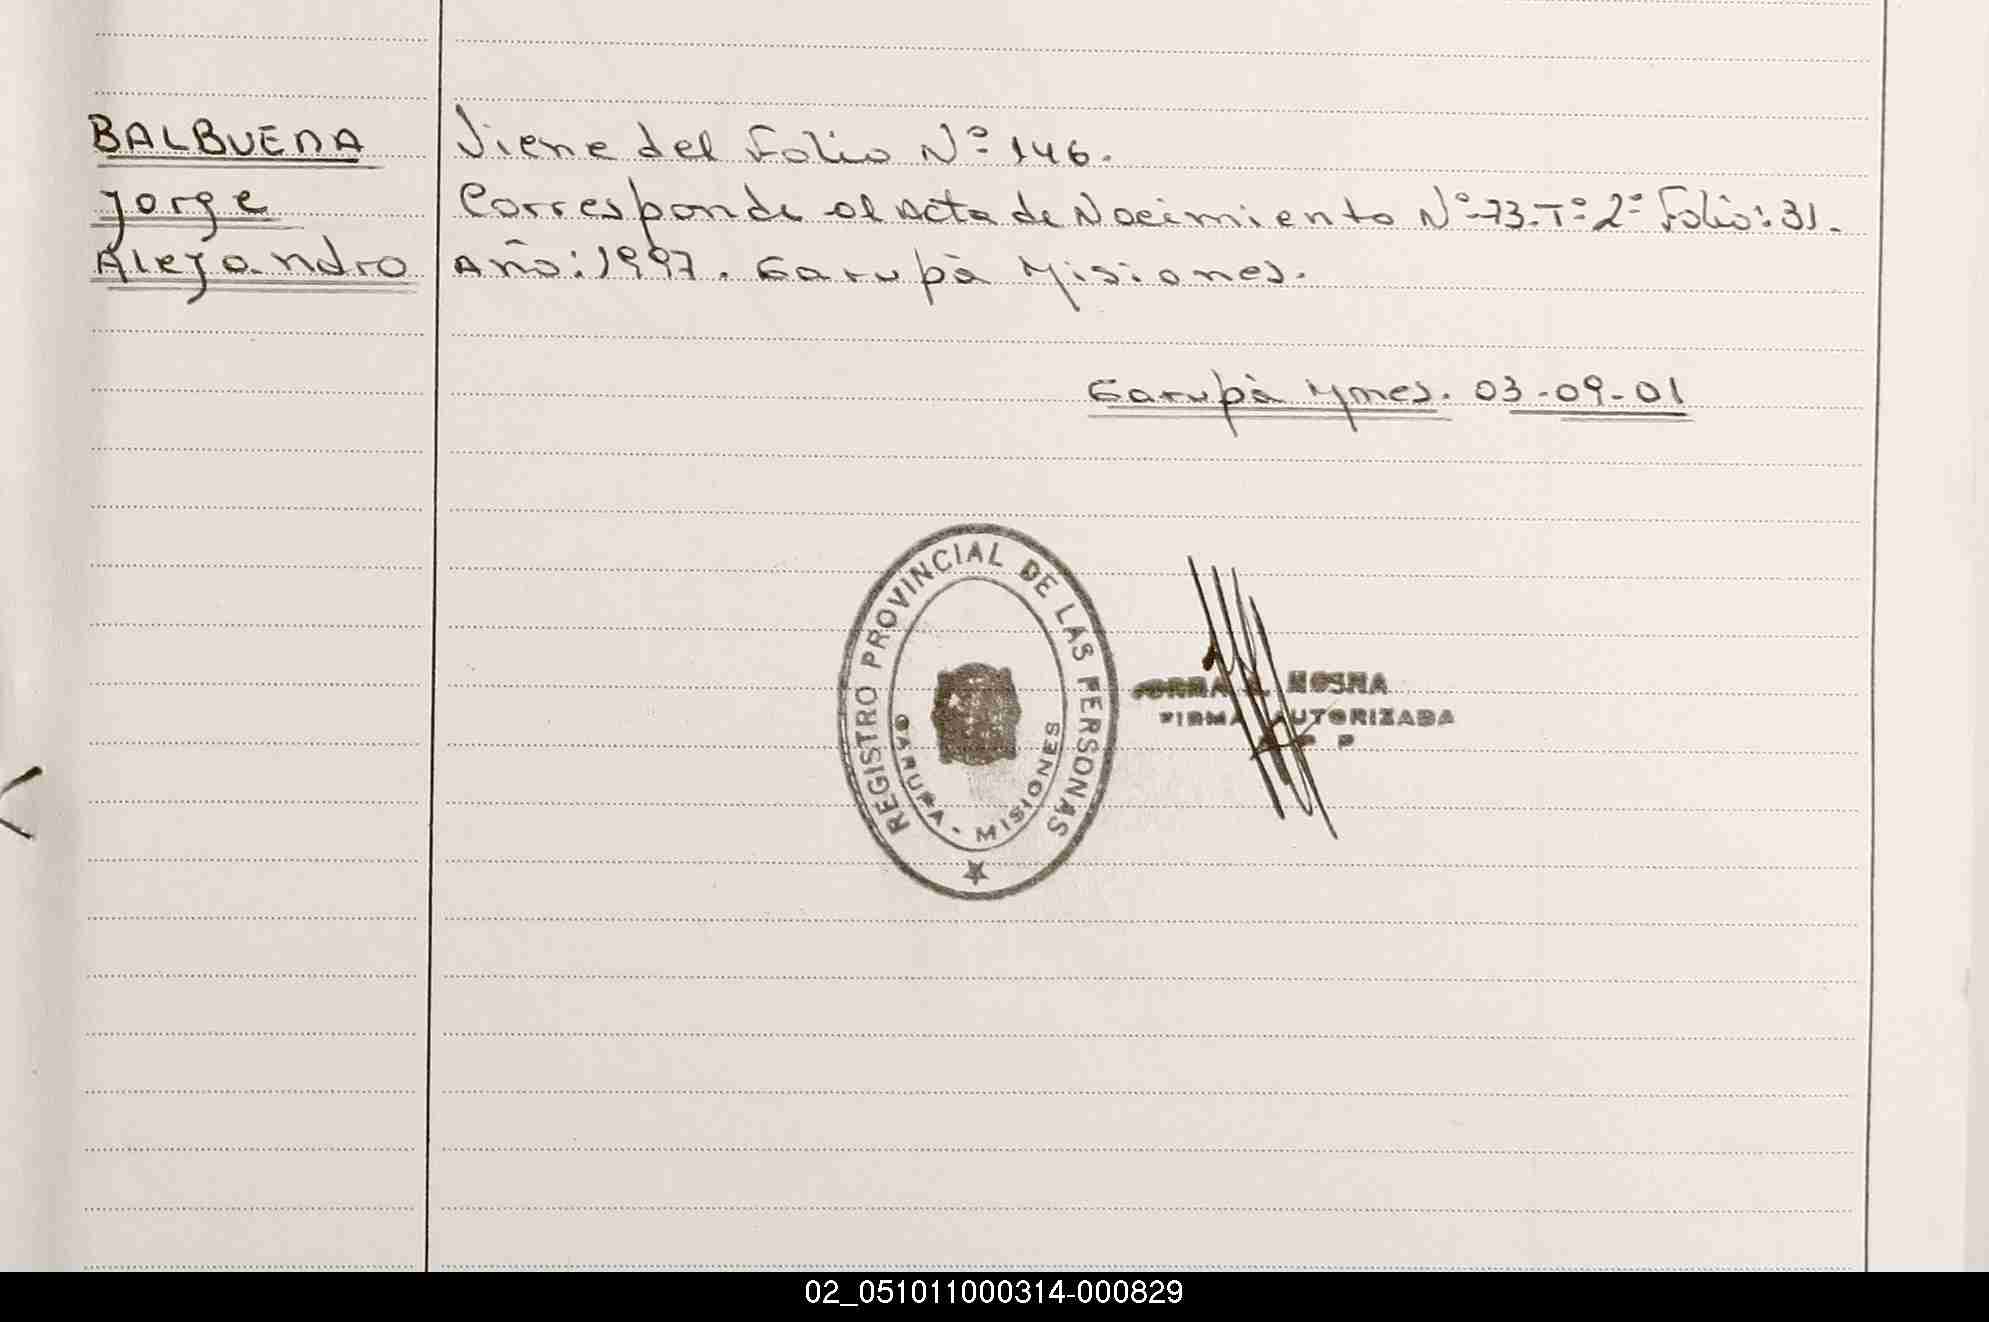 BALBUENA
Jorge
Alejandro
Viene del Folio Nº 146.
Corresponde al acta de Nacimiento Nº 73. Tº 2º Folio: 31.
Año: 1997. Garupá Misiones.
Garupá Mnes. 03-09-01
REGISTRO PROVINCIAL DE LAS PERSONAS
GARUPA - MISIONES
FIRMA AUTORIZADA
02_051011000314-000829